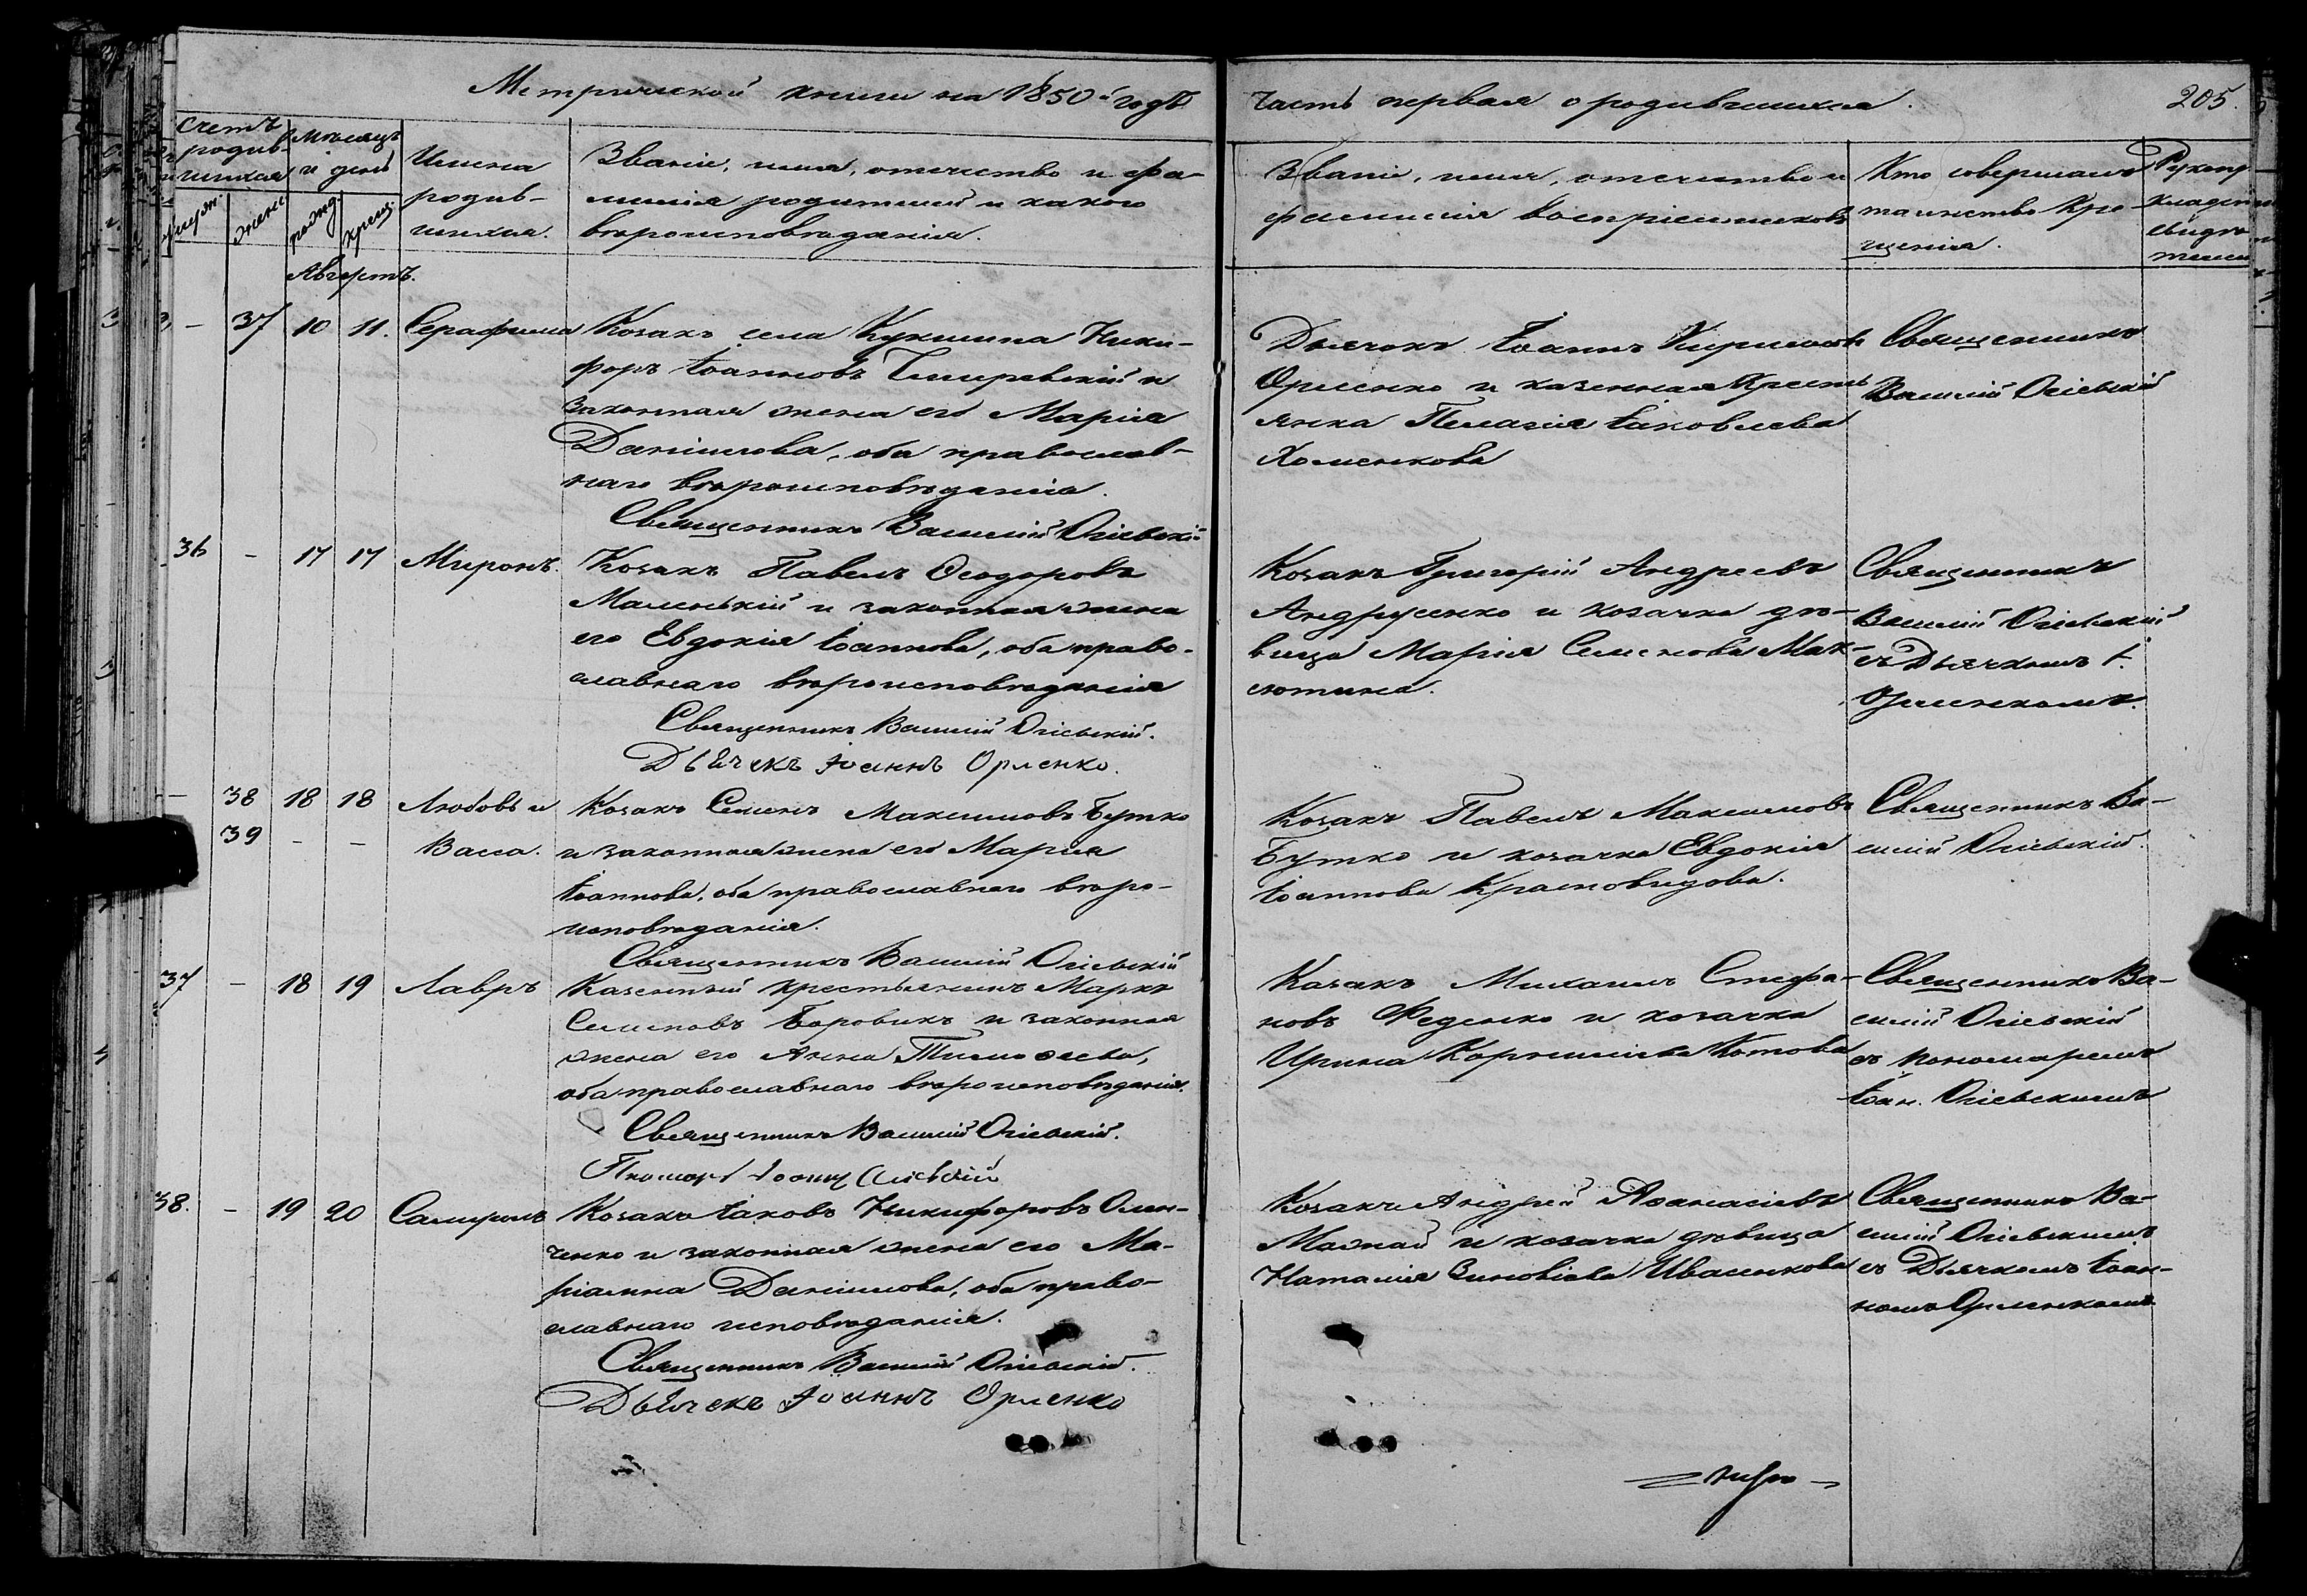 Метрической книги на 1850й годъ
часть первая о родившихся.
205.
счетъ родив- шихся
мужс.
женс.
мѣсяцъ и день
рожд.
крещ.
Имена родив- шихся.
Званіе, имя, отечество и фа-
милія родителей и какого
вѣроисповѣданія.
Званіе, имя, отечество и
фамилія воспріемниковъ
Кто совершалъ
таинство Кре-
щенія.
Рукопри
кладст
свидѣ
телей
Августъ.
– 37 10 11. Серафима
Козакъ села Кукшина Ники-
форъ Іоанновъ и
законная жена его Марія
Даніилова, оба православ-
наго вѣроисповѣданія.
Священникъ Василій Огіевскій
Дьячокъ Іоаннъ Кириловъ
Орленко и казенная Кресть
янка Пелагія Іаковлева
Хоменкова
Священникъ
Василій Огіевскій
36 – 17 17 Миронъ.
Козакъ Павелъ Ѳеодоровъ
Маленькій и законная жена
его Евдокія Іоаннова, оба право-
славнаго вѣроисповѣданія
Священникъ Василій Огіевскій.
Дьячекъ Іоаннъ Орленко.
Козакъ Григорій Андреевъ
Андрусенко и козачка дѣ-
вица Марія Семенова Мак-
сютина.
Священникъ
Василій Огіевскій
съ Дьячкомъ І.
Орленкомъ.
– 38 18 18 Любовь и
39 – – Васса.
Козакъ Семенъ Максимовъ Бутко
и законная жена его Марія
Іоаннова, оба православнаго вѣро-
исповѣданія.
Священникъ Василій Огіевскій
Козакъ Павелъ Максимовъ
Бутко и козачка Евдокія
Іоаннова Красновидова.
Священникъ Ва-
силій Огіевскій.
37 – 18 19 Лавръ
Казенный крестьянинъ Маркъ
Семеновъ Боровикъ и законная
жена его Анна Тимоѳеева,
оба православнаго вѣроисповѣданія.
Священникъ Василій Огіевскій.
Пномарь Іоаннъ Огіевскій
Козакъ Михаилъ Стефа-
новъ Феденко и козачка
Ирина Корниліева Котова
Священникъ Ва-
силій Огіевскій
съ пономаремъ
Іоан. Огіевскимъ
38. – 19 20 Самуилъ
Козакъ Іаковъ Никифоровъ Олен-
ченко и законная жена его Ма-
ріамна Даніилова, оба право-
славнаго исповѣданія.
Священникъ Василій Огіевскій.
Дьячекъ Іоаннъ Орленко
Козакъ Андрей Аѳанасіевъ
Мазнай и козачка дѣвица
Наталія Зиновіева Ивашкова
Священникъ Ва-
силій Огіевскимъ
съ Дьячкомъ Іоан-
номъ Орленкомъ